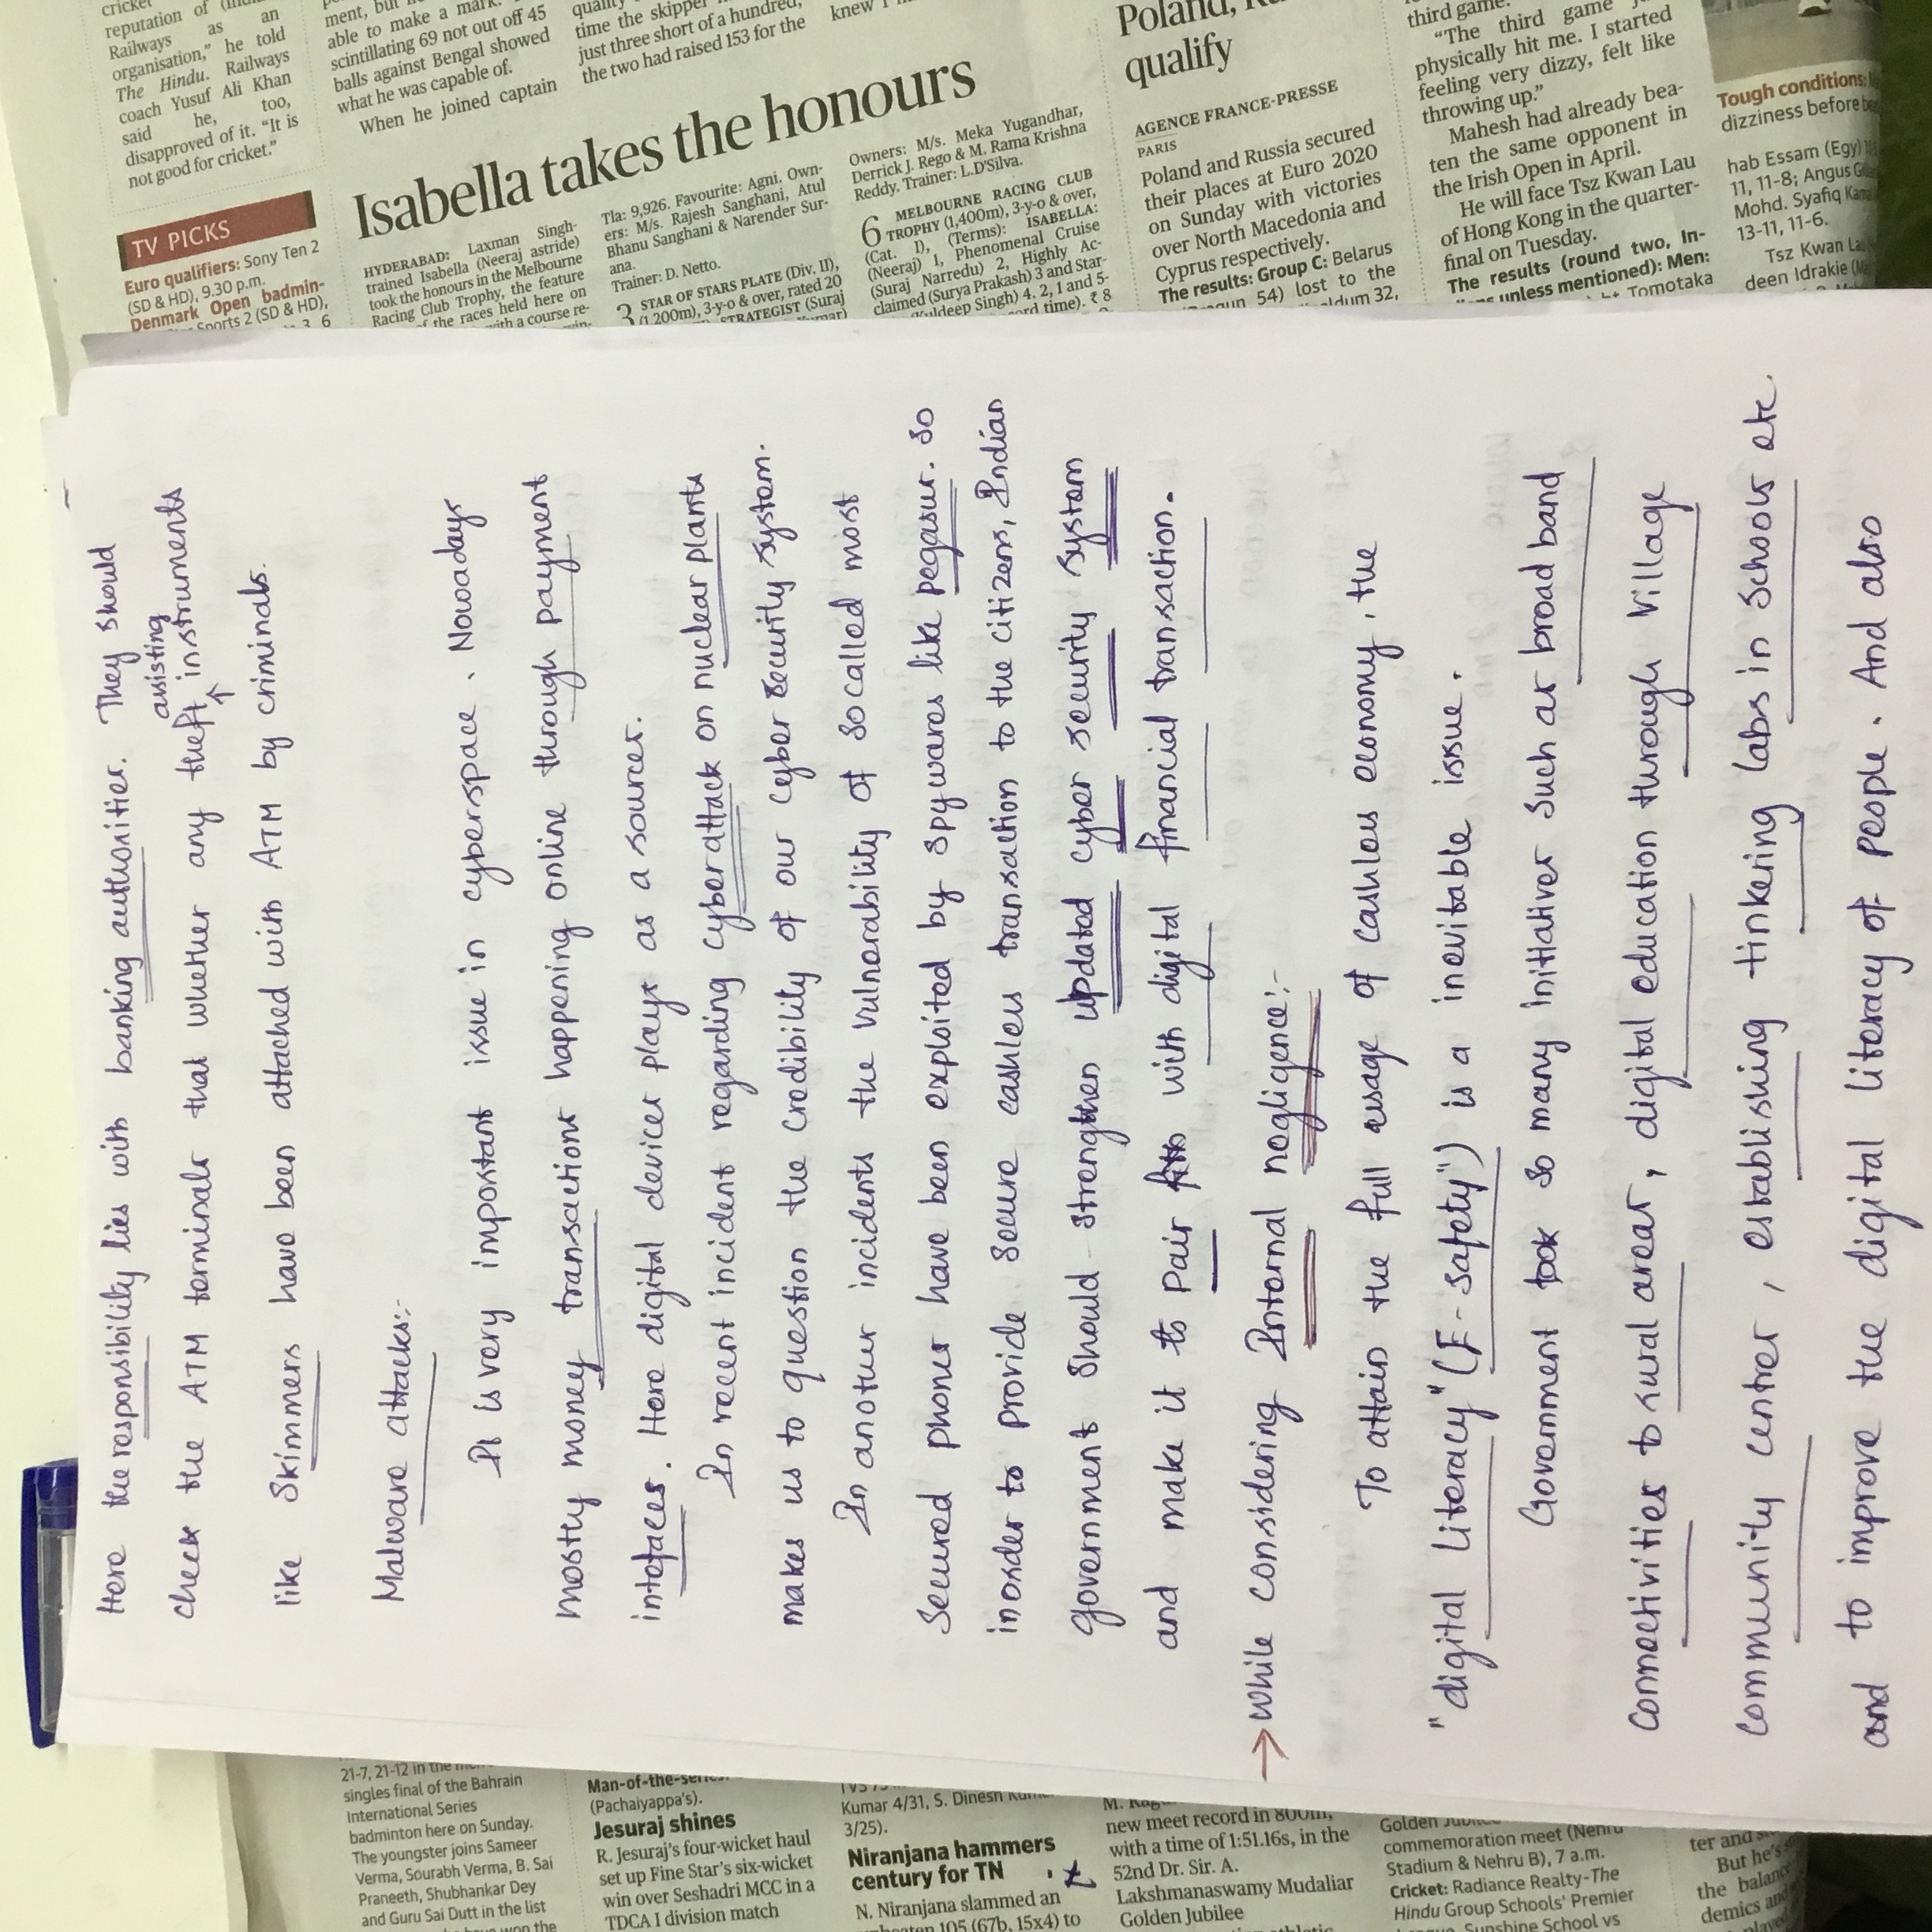 cricket
reputation of
Railways as an
organisation," he told
The Hindu. Railways
coach Yusuf Ali Khan
said he, too,
disapproved of it. "It is
not good for cricket."
TV PICKS
Euro qualifiers: Sony Ten 2
(SD & HD), 9.30 p.m.
Denmark Open badmin-
Sports 2 (SD & HD),
able to make a mark.
scintillating 69 not out off 45
balls against Bengal showed
what he was capable of.
When he joined captain
time the skipper
just three short of a hundred,
the two had raised 153 for the
knew I
Isabella takes the honours
HYDERABAD: Laxman Singh-
trained Isabella (Neeraj astride)
took the honours in the Melbourne
Racing Club Trophy, the feature
of the races held here on
with a course re-
Tla: 9,926. Favourite: Agni. Own-
ers: M/s. Rajesh Sanghani, Atul
Bhanu Sanghani & Narender Sur-
ana.
Trainer: D. Netto.
3 STAR OF STARS PLATE (Div. II),
(1,200m), 3-y-o & over, rated 20
STRATEGIST (Suraj
Owners: M/s. Meka Yugandhar,
Derrick J. Rego & M. Rama Krishna
Reddy. Trainer: L.D'Silva.
6 MELBOURNE RACING CLUB
TROPHY (1,400m), 3-y-o & over,
(Cat. I), (Terms): ISABELLA:
(Neeraj) 1, Phenomenal Cruise
(Suraj Narredu) 2, Highly Ac-
claimed (Surya Prakash) 3 and Star-
(Kuldeep Singh) 4. 2, 1 and 5-
record time). ₹ 8
Poland,
qualify
AGENCE FRANCE-PRESSE
PARIS
Poland and Russia secured
their places at Euro 2020
on Sunday with victories
over North Macedonia and
Cyprus respectively.
The results: Group C: Belarus
54) lost to the
32,
third game.
"The third game
physically hit me. I started
feeling very dizzy, felt like
throwing up."
Mahesh had already bea-
ten the same opponent in
the Irish Open in April.
He will face Tsz Kwan Lau
of Hong Kong in the quarter-
final on Tuesday.
The results (round two, In-
unless mentioned): Men:
Tomotaka
Tough conditions:
dizziness before
hab Essam (Egy)
11, 11-8; Angus
Mohd. Syafiq
13-11, 11-6.
Tsz Kwan
deen Idrakie
Here the responsibility lies with banking authorities. They should
assisting
check the ATM terminals that whether any theft instruments
like Skimmers have been attached with ATM by criminals.
Malware attacks:-
It is very important issue in cyberspace. Nowadays
mostly money transactions happening online through payment
intefaces. Here digital devices plays as a sources.
In recent incident regarding cyber attack on nuclear plants
makes us to question the credibility of our cyber security system.
In another incidents the vulnerability of so called most
Secured phones have been exploited by spywares like pegasus. So
inorder to provide secure cashless transaction to the citizens, Indian
government should strengthen updated cyber security system
and make it to pair with digital financial transaction.
→ While considering Internal negligence:-
To attain the full usage of cashless economy, the
"digital literacy" (E-safety") is a inevitable issue.
Government took so many initiatives such as broad band
connectivities to rural areas, digital education through village
community centres, establishing tinkering labs in schools etc.
and to improve the digital literacy of people. And also
21-7, 21-12 in the
singles final of the Bahrain
International Series
badminton here on Sunday.
The youngster joins Sameer
Verma, Sourabh Verma, B. Sai
Praneeth, Shubhankar Dey
and Guru Sai Dutt in the list
won the
Man-of-the-series:
(Pachaiyappa's).
Jesuraj shines
R. Jesuraj's four-wicket haul
set up Fine Star's six-wicket
win over Seshadri MCC in a
TDCA I division match
Kumar 4/31, S. Dinesh Kumar
3/25).
Niranjana hammers
century for TN
N. Niranjana slammed an
105 (67b, 15x4) to
new meet record in 800m,
with a time of 1:51.16s, in the
52nd Dr. Sir. A.
Lakshmanaswamy Mudaliar
Golden Jubilee
Golden Jubilee
commemoration meet (Nehru
Stadium & Nehru B), 7 a.m.
Cricket: Radiance Realty-The
Hindu Group Schools' Premier
Sunshine School vs
ter and
But he's
the balance
demics and